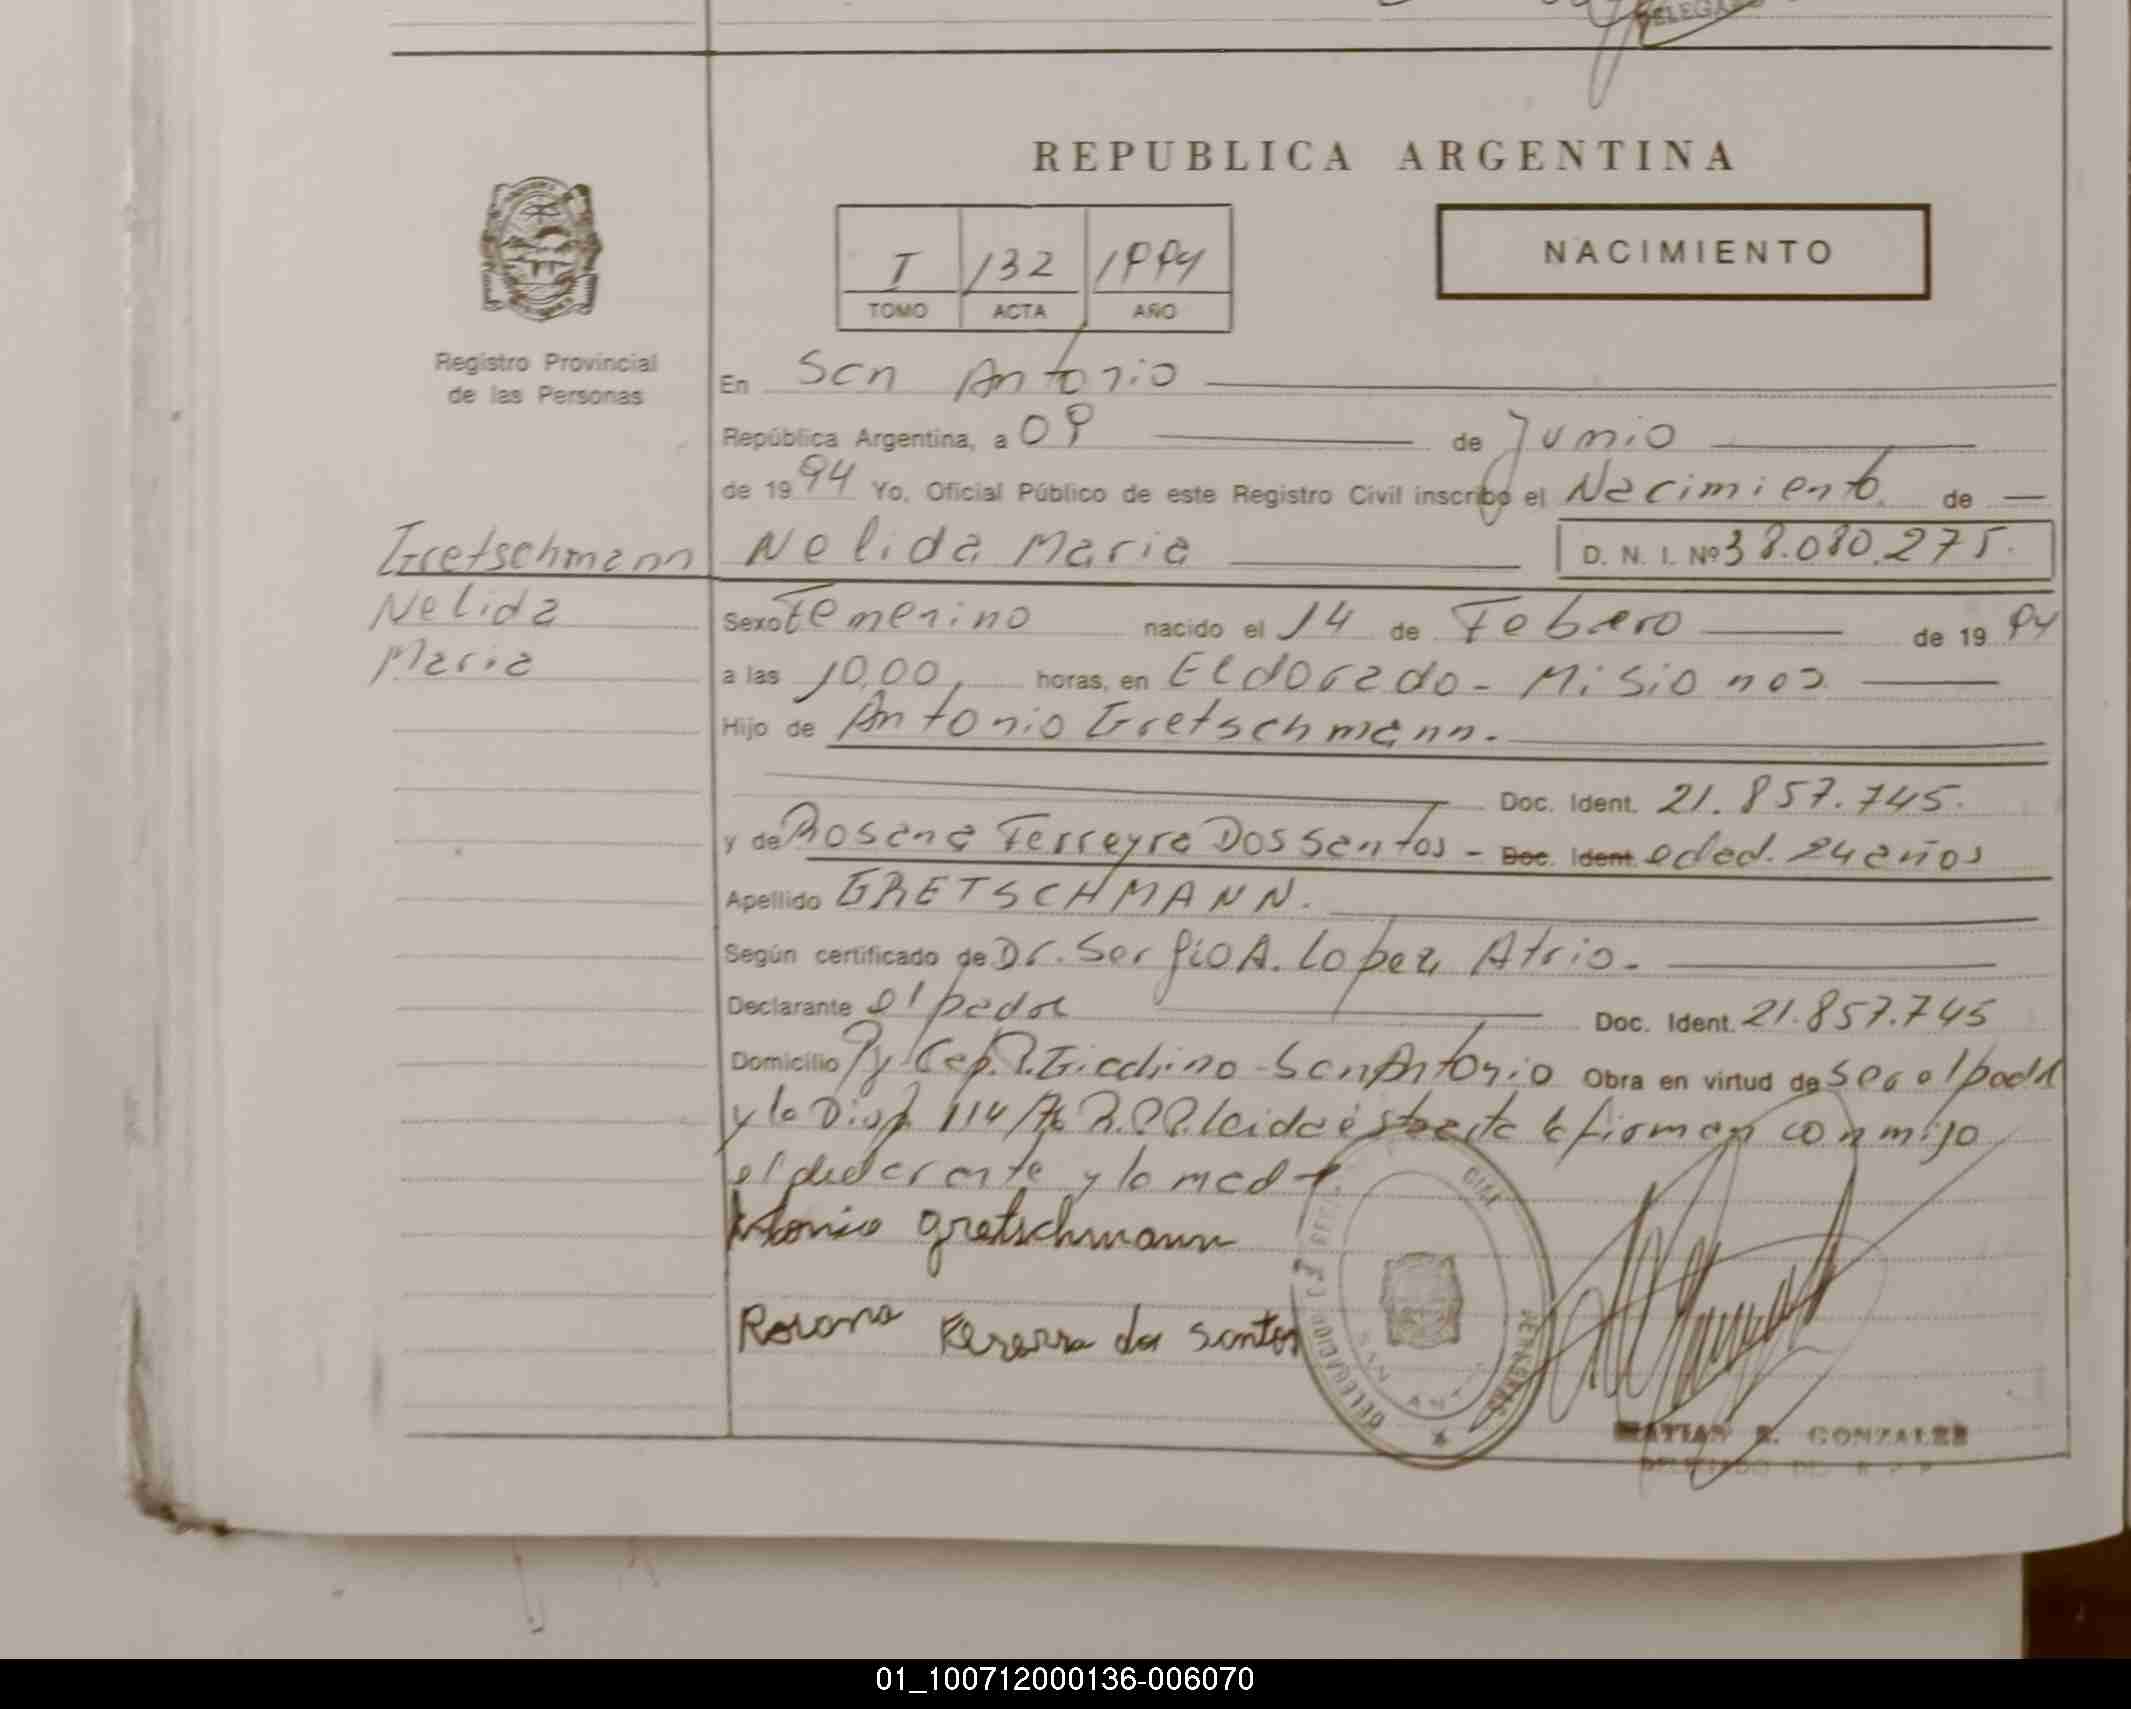 DELEGADO
REPUBLICA ARGENTINA
I 132 1994
TOMO ACTA AÑO
NACIMIENTO
Registro Provincial
de las Personas
En San Antonio
República Argentina, a 09 de Junio
de 1994 Yo, Oficial Público de este Registro Civil inscribo el Nacimiento de
Gretschmann Nelida Maria D. N. I. Nº 38.080.275.
Nelida
Maria
Sexo Femenino nacido el 14 de Febrero de 1994
a las 10,00 horas, en Eldorado - Misiones
Hijo de Antonio Gretschmann.
Doc. Ident. 21.857.745.
y de Rosana Ferreyra Dos Santos - Doc. Ident. edad. 24 años
Apellido GRETSCHMANN.
Según certificado de Dr. Sergio A. Lopez Atrio.
Declarante el padre Doc. Ident. 21.857.745
Domicilio San Antonio Obra en virtud de ser el padre
y la Disp. 114 leida firman conmigo
el declarante y la madre
Antonio gretschmann
Rosana Ferreyra dos santos
DELEGACION
SAN ANT
GONZALEZ
01_100712000136-006070